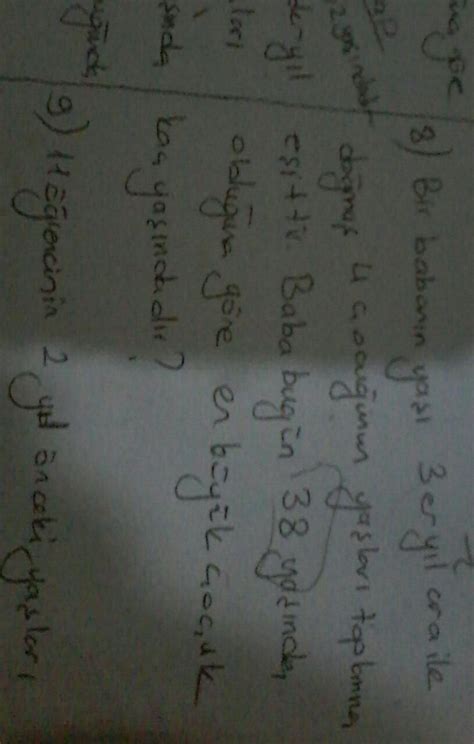 una göre
2 yaşındadır
yıl
ları
8) Bir babanın yaşı 3 er yıl ara ile
doğmuş 4 çocuğunun yaşları toplamına
eşittir Baba bugün 38 yaşında
olduğuna göre en büyük çocuk
kaç yaşındadır?
9) 11 öğrencinin 2 yıl önceki yaşları